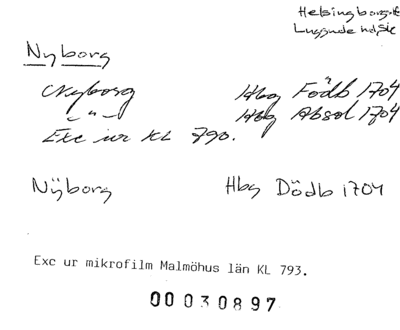 Helsingborgs
Luggude hd, Sk
Nyborg
Nyborg Hbg Födb 1704
— " — Hbg Absol 1704
Exc ur KL 790.
Nÿborg Hbg Dödb 1704
Exc ur mikrofilm Malmöhus län KL 793.
00030897